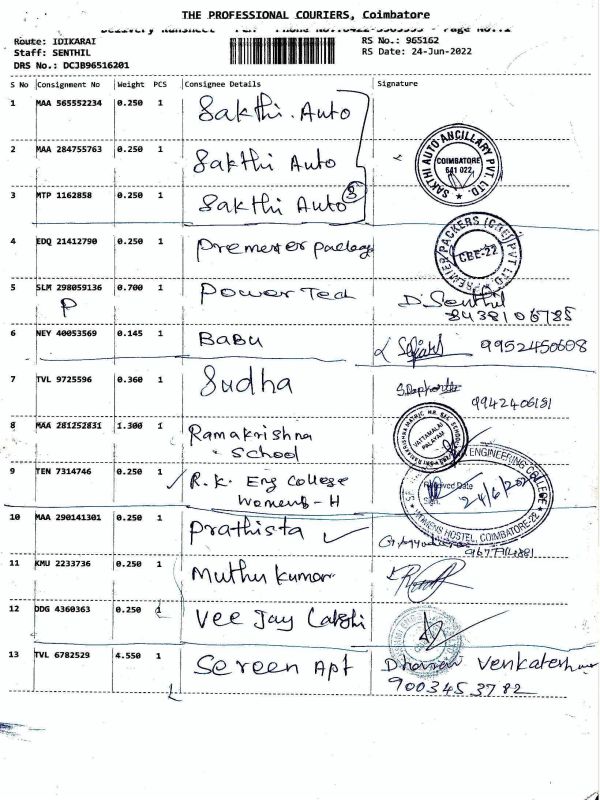 THE PROFESSIONAL COURIERS, Coimbatore
Route: IDIKARAI
Staff: SENTHIL
DRS No.: DCJB96516201
RS No.: 965162
RS Date: 24-Jun-2022
S No Consignment No Weight PCS Consignee Details Signature
1 MAA 565552234 0.250 1 Sakthi. Auto
2 MAA 284755763 0.250 1 Sakthi Auto
SAKTHI AUTO ANCILLARY PVT. LTD.
COIMBATORE
641 022
3 MTP 1162858 0.250 1 Sakthi Auto 3
4 EDQ 21412790 0.250 1
PREMIER PACKERS (CBE) PVT LTD
CBE-22
5 SLM 298059136 0.700 1 Power Tech D. Senthil
P 8438106785
6 NEY 40053569 0.145 1 BABU 9952450608
7 TVL 9725596 0.360 1 Sudha
9942406181
8 MAA 281252831 1.300 1 Ramakrishna
School
VATTAMALAI
PALAYAM
9 TEN 7314746 0.250 1 R.K. Eng College
Womens - H
ENGINEERING COLLEGE
Received Date
24/6/2022
Sign.
WOMENS HOSTEL, COIMBATORE-22
10 MAA 290141301 0.250 1 Prathista
11 KMU 2233736 0.250 1 Muthu kumar
12 DDG 4360363 0.250 1 Vee Jay
13 TVL 6782529 4.550 1 Sereen Apt
9003453782